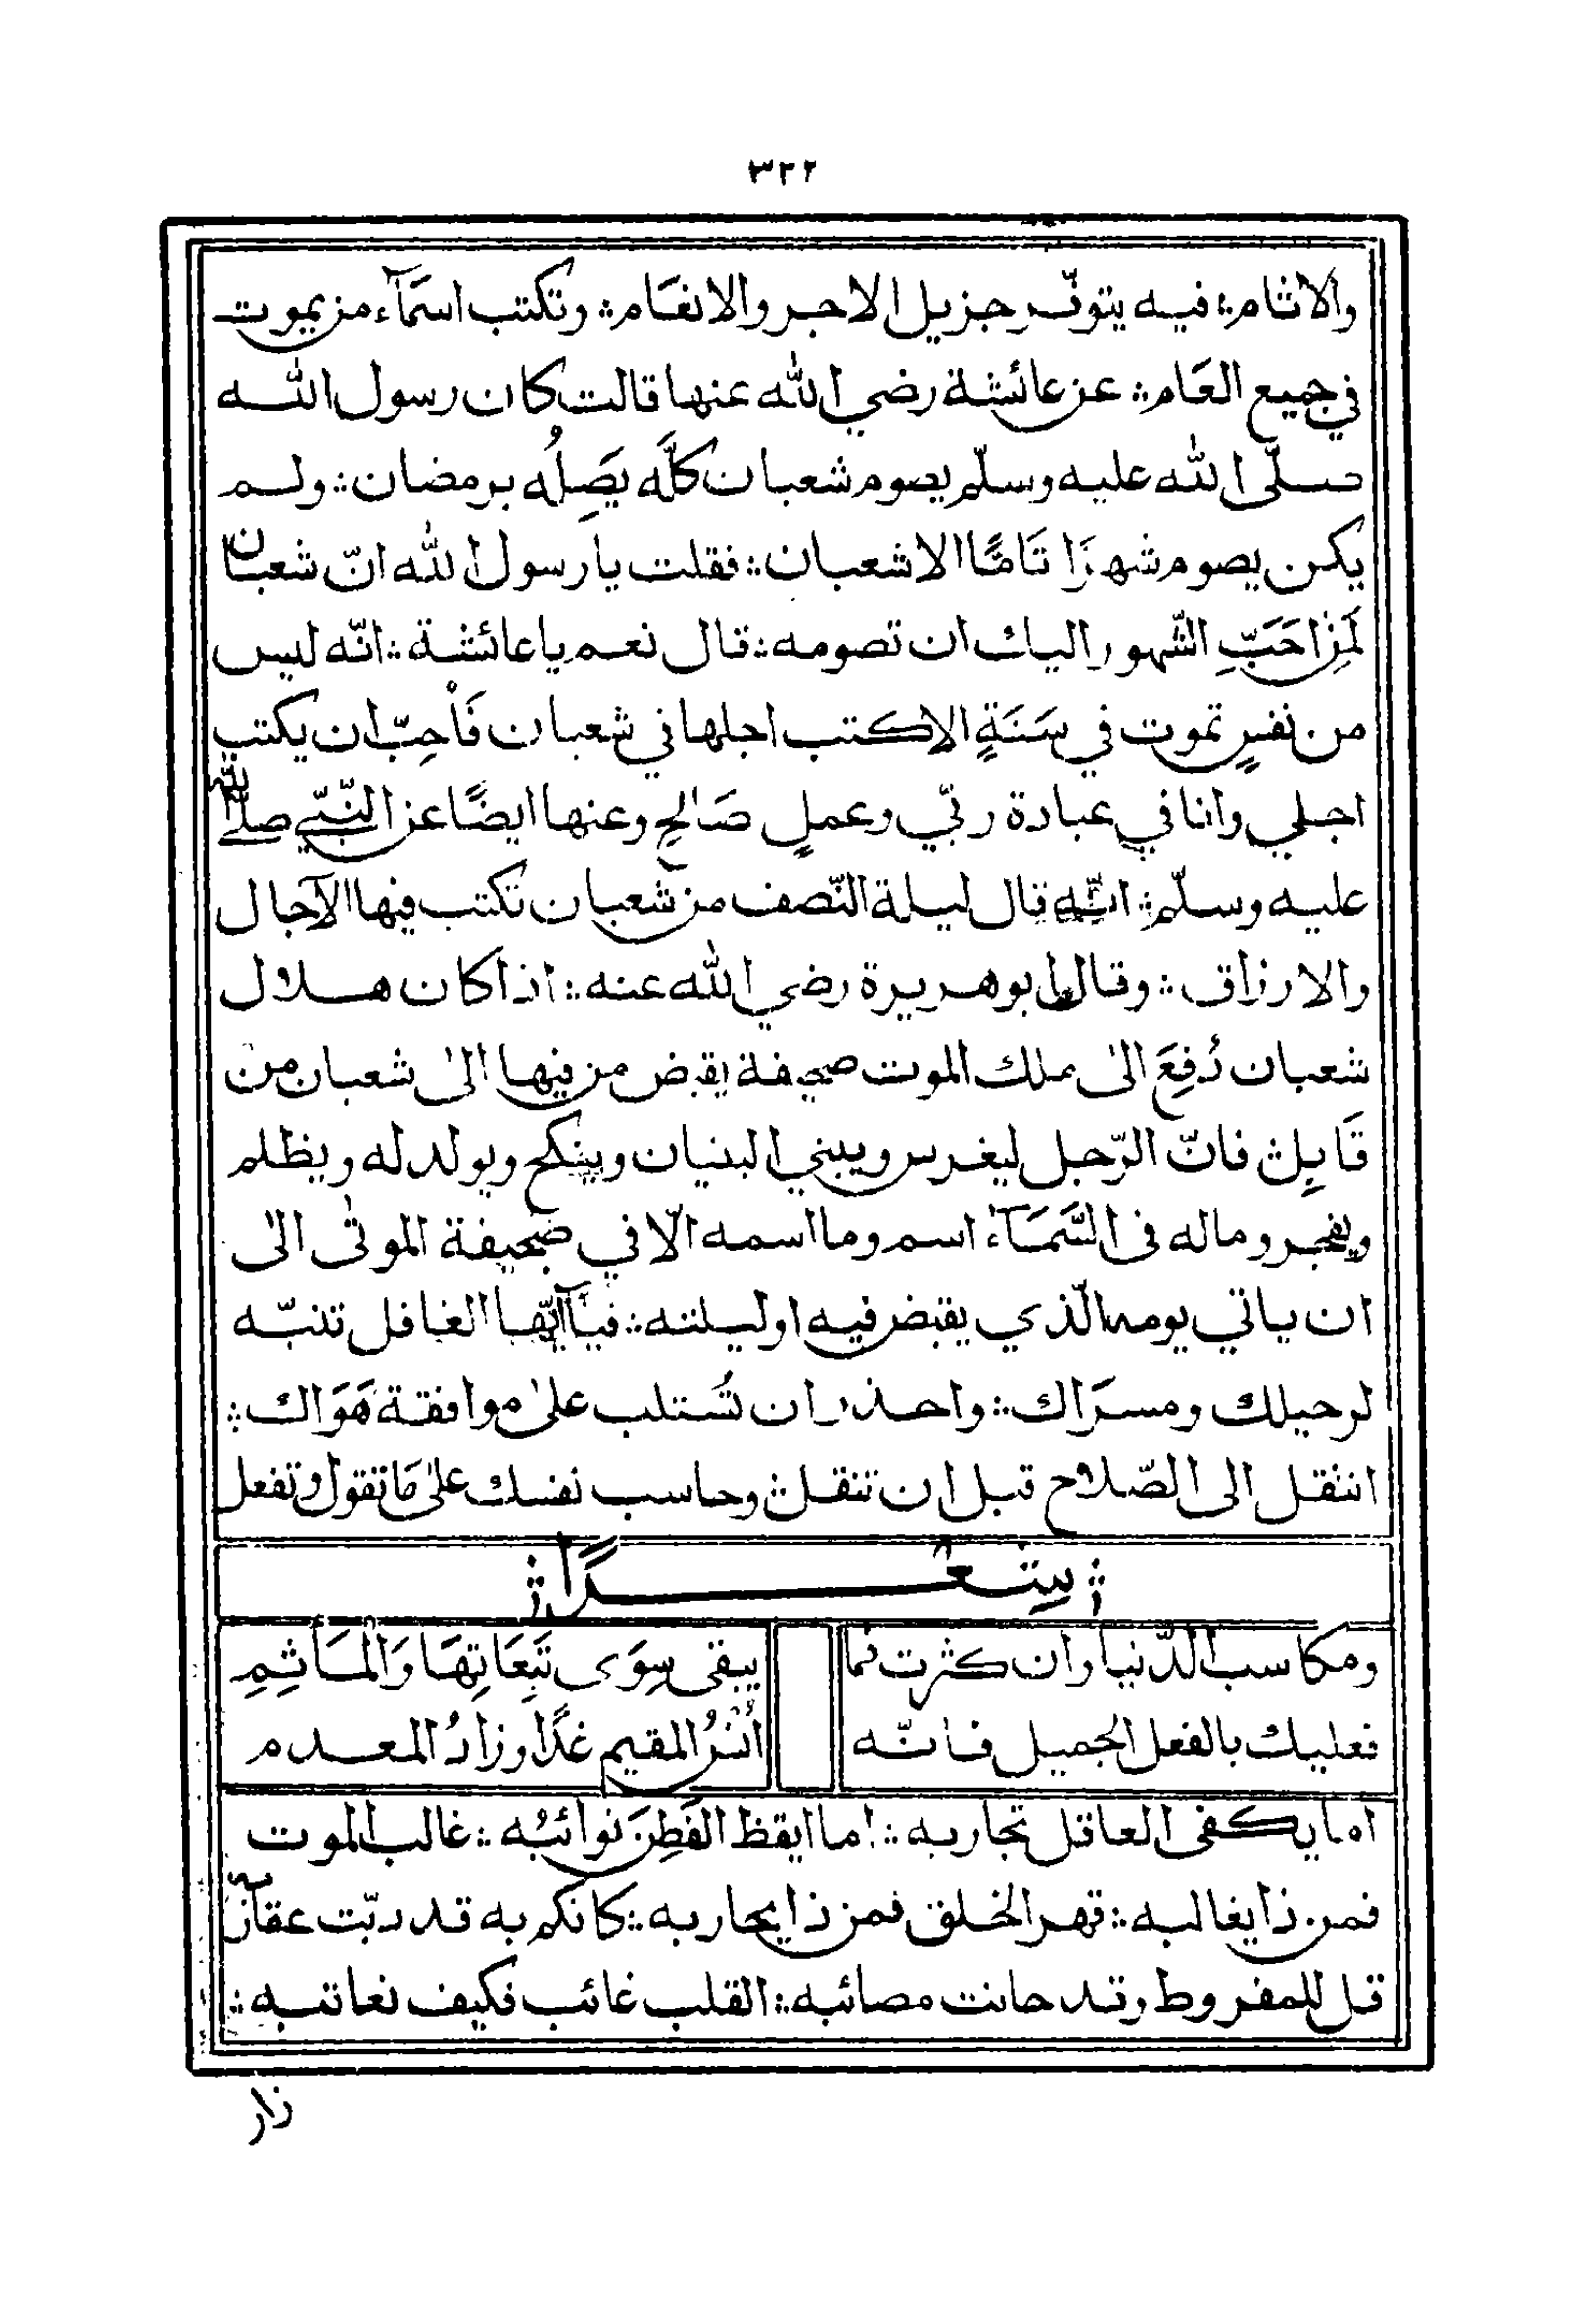 ٣٢٢
والاثام ؛ فيه يتوفّر جزيل الاجر والانعَام ؞ وتكتب اسمَآء من يموت
في جميع العَام ؞ عن عائشة رضي الله عنها قالت كان رسول الله
صلّى الله عليه وسلّم يصوم شعبان كلَّه يَصِلُه برمضان ؞ ولم
يكن يصوم شهرًا تَامًّا الا شعبان ؞ فقلت يا رسول الله انّ شعبان
لَمِنْ احَبِّ الشّهور اليك ان تصومه ؞ قال نعم يا عائشة ؞ انّه ليس
من نفسٍ تموت في سَنَةٍ الا كتب اجلها في شعبان فَأُحِبّ ان يكتب
اجلي وانا في عبادة ربّي وعملٍ صَالحٍ وعنها ايضًا عن النّبّي صلّى الله
عليه وسلّم ؞ انّه قال ليلة النّصف من شعبان تكتب فيها الآجال
والارزاق ؞ وقال ابو هريرة رضي الله عنه ؞ اذا كان هلال
شعبان دُفِعَ الى ملك الموت صحيفة يقبض من فيها الى شعبان من
قَابِلٍ فانّ الرّجل ليغرس ويبني البنيان وينكح ويولد له ويظلم
ويفجر وماله فى السَّمَآء اسم وما اسمه الّا في صحيفة الموتى الى
ان ياتي يومه الّذي يقبض فيه او ليلته ؞ فيَآ ايّها الغافل تنبّه
لرحيلك ومسرَاك ؞ واحذر ان تُستلب على موافقة هَوَاك ؞
انتقل الى الصّلاح قبل ان تنقل ؞ وحاسب نفسك على مَا تقول وتفعل
؞ شعرًا ؞
ومكاسب الدّنيا وان كثرت فما يبقى سِوَى تَبِعَاتِهَا وَالمَأثِمِ
فعليك بالفعل الجميل فانّه اُنْسُ المقيم غدًا وزادُ المعدم
اما يكفى العاقل تجاربه ؞ اما ايقظ الفَطِنَ نوائبُه ؞ غالب الموت
فمن ذا يغالبه ؞ قهر الخلق فمن ذا يحاربه ؞ كانكم به قد دبّت عقاربه
قل للمفروط وقد حانت مصائبه ؞ القلب غائب فكيف نعاتبه ؞
زار